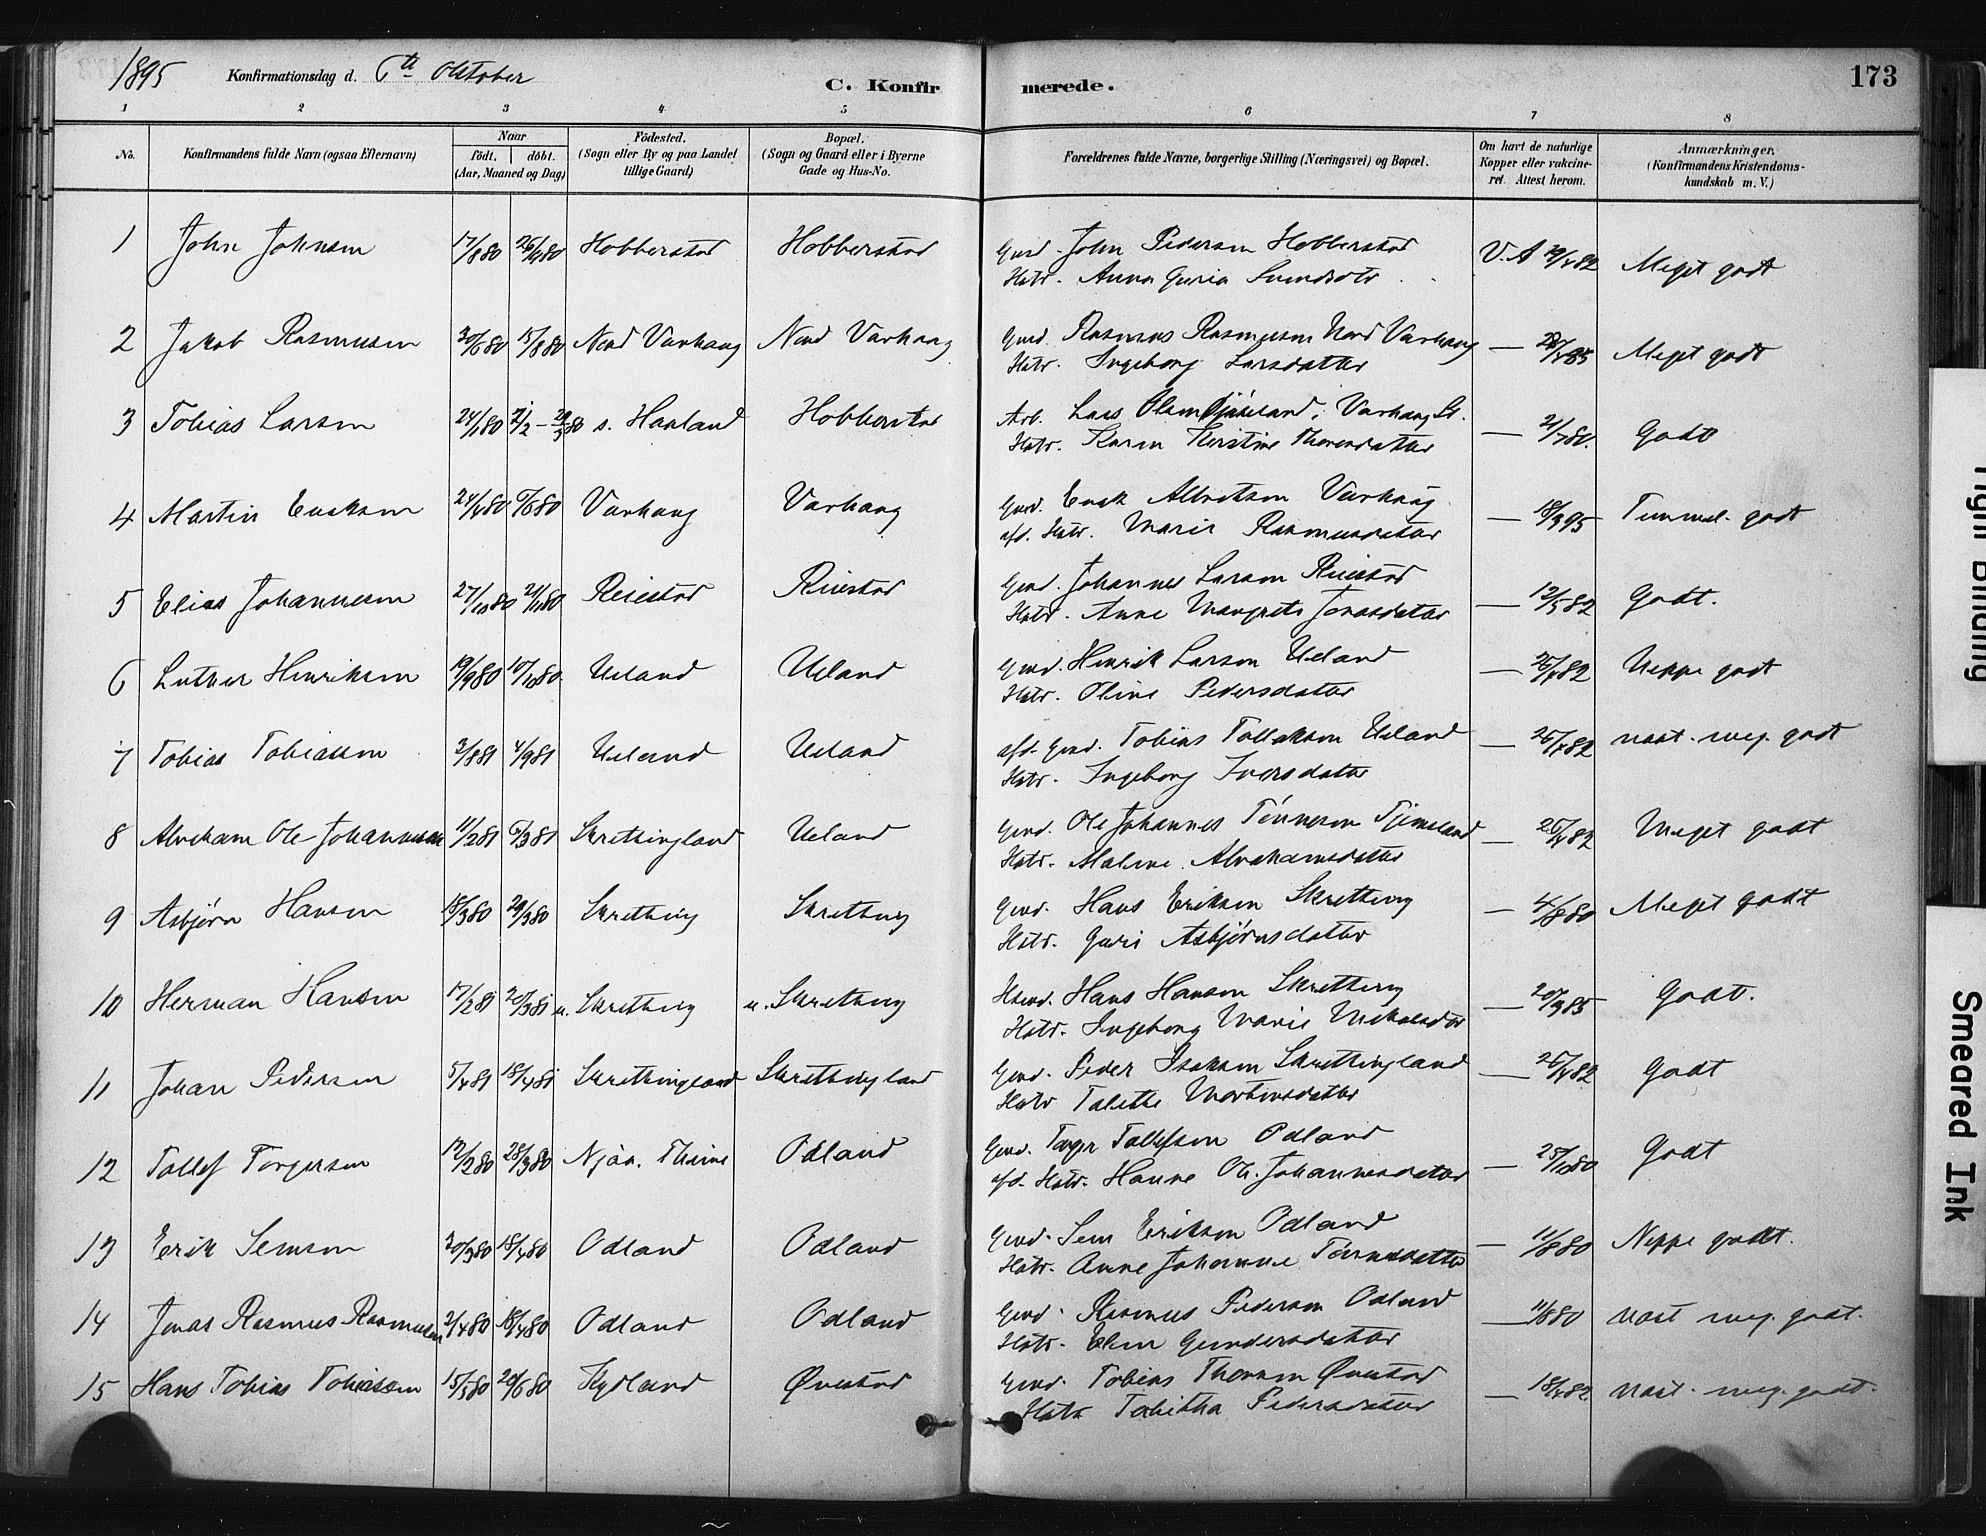 1895 Konfirmationsdag d. 6te Oktober
C. Konfirmerede.
173
1 2 3 4 5 6 7 8
No.
Konfirmandens fulde Navn (ogsaa Efternavn)
Naar
födt. döbt.
(Aar, Maaned og Dag)
Födested.
(Sogn eller By og paa Landet
tillige Gaard)
Bopæl.
(Sogn og Gaard eller i Byerne
Gade og Hus-No.
Forældrenes fulde Navne, borgerlige Stilling (Næringsvei) og Bopæl.
Om havt de naturlige
Kopper eller vakcine-
ret. Attest herom.
Anmærkninger,
(Konfirmandens Kristendoms-
kundskab m. V.)
1 John Johnsen 17/8 80 26/9 80 Hobberstad Hobberstad Gmd. John Pedersen Hobberstad V. A Meget godt
Hstr. Anna Guria Svendsdtr
2 Jakob Rasmussen 30/6 80 15/8 80 Nord Varhaug Nord Varhaug Gmd. Rasmus Rasmussen Nord Varhaug — Meget godt
Hstr. Ingeborg Larsdatter
3 Tobias Larsen 24/1 80 s. Haaland Hobberstad Arb. Lars Olsen Varhaug St. — 21/7 80. Godt
Hstr. Karen Kirstine Thorsdatter
4 Martin Eriksen 24/4 80 6/6 80 Varhaug Varhaug Gmd. Erik Albretsen Varhaug — 18/9 95 Temmel. godt
afd. Hstr. Marie Rasmusdatter
5 Elias Johannesen 27/10 80 21/11 80 Reiestad Reiestad Gmd. Johannes Larsen Reiestad — 12/5 82 Godt.
Hstr. Anne Margrete Jonasdatter
6 Luther Henriksen 19/9 80 10/10 80 Ueland Ueland Gmd. Henrik Larsen Ueland — 26/4 82 Neppe godt
Hstr. Oline Pedersdatter
7 Tobias Tobiassen 3/8 81 4/9 81 Ueland Ueland afd. Gmd. Tobias Tollaksen Ueland — 26/4 82 næst. meg. godt
Hstr. Ingeborg Iversdatter
8 Abraham Ole Johannessen 11/2 81 6/3 81 Skrettingland Ueland Gmd. Ole Johannes Tönnesen Tjemsland — 26/4 82 Meget godt
Hstr. Malene Abrahamsdatter
9 Asbjørn Hansen 15/3 80 29/3 80 Skretting Skretting Gmd. Hans Eriksen Skretting — 4/8 80 Meget godt
Hstr. Guri Asbjørnsdatter
10 Herman Hansen 17/2 81 20/3 81 n. Skretting n. Skretting Hans Hansen Skretting — 20/9 85 Godt.
Hstr. Ingeborg Marie
11 Johan Pedersen 5/4 81 18/4 81 Skrettingland Skrettingland Gmd. Peder Isaksen Skrettingland — 26/4 82 Godt
Hstr Talette Mortensdatter
12 Tollef Torgersen 12/2 80 28/3 80 Njåa. Thime Odland Gmd. Torger Tollefsen Odland — 25/10 80 Godt
afd. Hstr. Hanne Ol. Johannesdatter
13 Erik Semsen 20/3 80 18/4 80 Odland Odland Gmd. Sem Eriksen Odland — 11/8 80 Neppe godt.
Hstr. Anne Johanne Tönnesdatter
14 Jonas Rasmus Rasmussen 2/4 80 18/4 80 Odland Odland Gmd. Rasmus Pedersen Odland — 11/8 80 næst meg. godt.
Hstr. Elen Gundersdatter
15 Hans Tobias Tobiassen 15/5 80 20/6 80 Kydland Øvestad Gmd. Tobias Thorsen Øvestad — 18/4 82 næst. meg. godt.
Hstr Tabitha Pedersdatter
Tight Binding
Smeared Ink